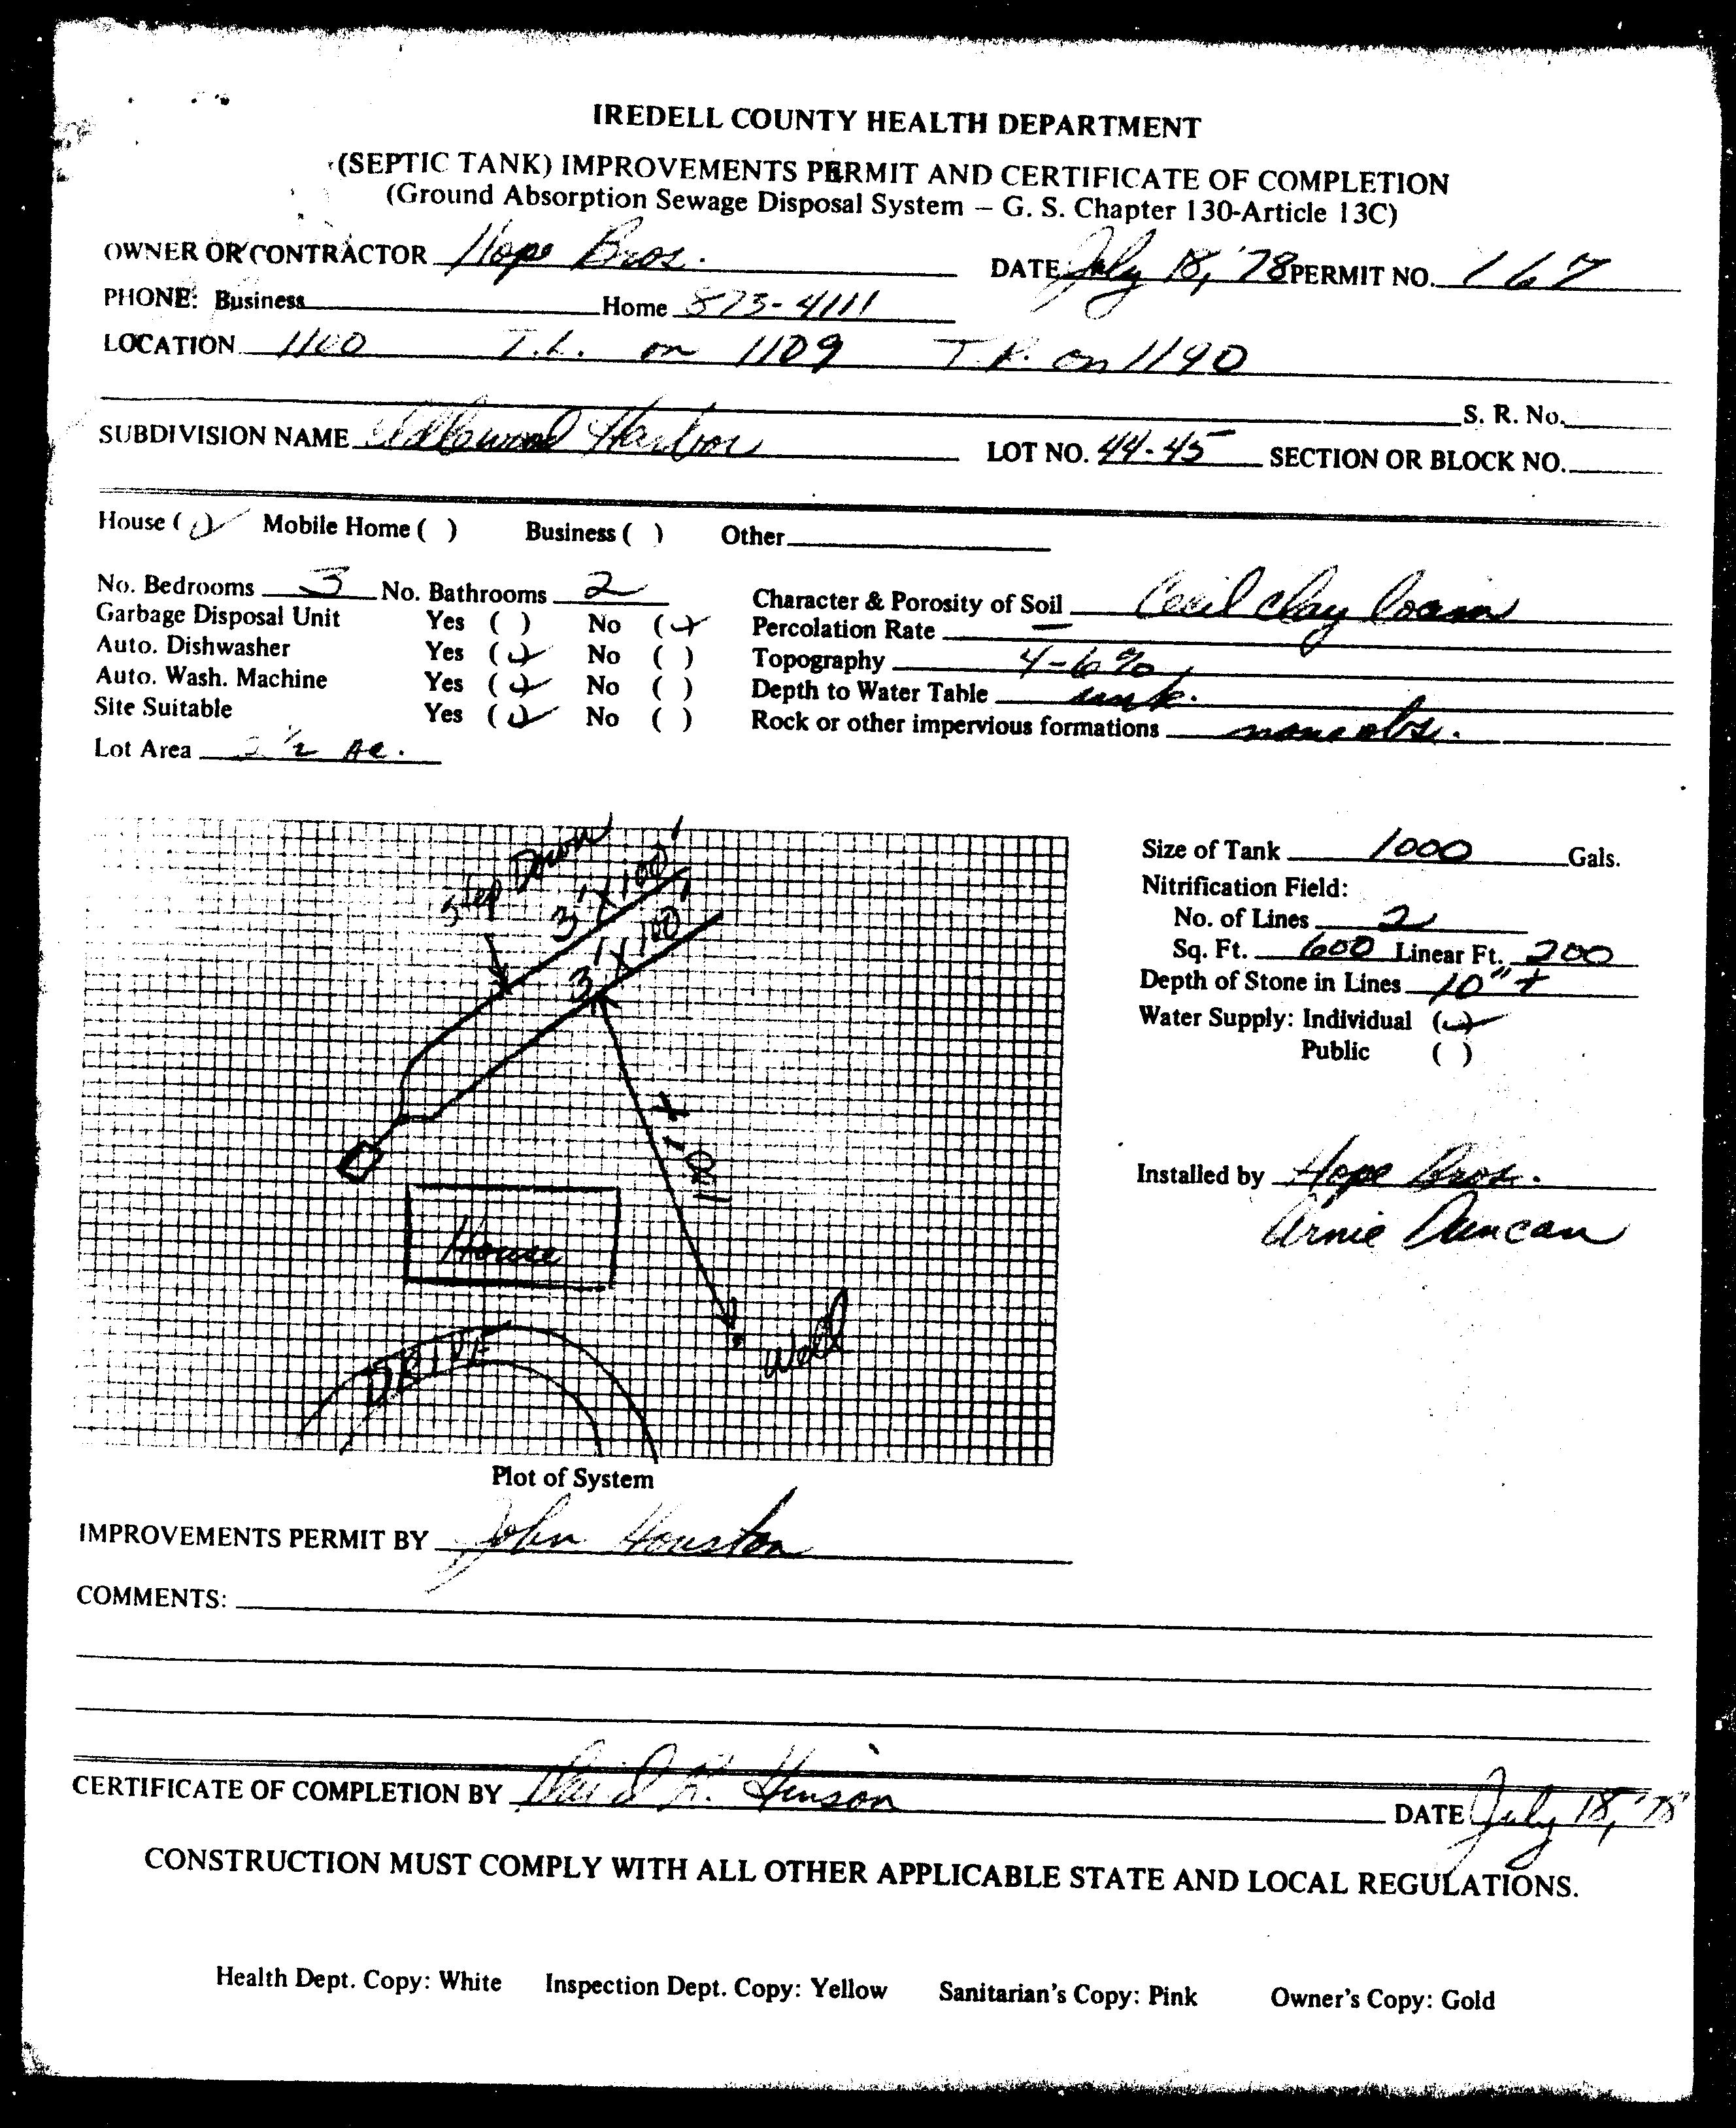 IREDELL COUNTY HEALTH DEPARTMENT
(SEPTIC TANK) IMPROVEMENTS PERMIT AND CERTIFICATE OF COMPLETION
(Ground Absorption Sewage Disposal System – G. S. Chapter 130-Article 13C)
OWNER OR CONTRACTOR Hope Bros. DATE July 18, '78 PERMIT NO. 167
PHONE: Business Home 873-4111
LOCATION 1100 T.L. on 1109 T.R. on 1190
S. R. No.
SUBDIVISION NAME Harbor LOT NO. 44-45 SECTION OR BLOCK NO.
House ( ✓ ) Mobile Home ( ) Business ( ) Other
No. Bedrooms 3 No. Bathrooms 2 Character & Porosity of Soil Cecil clay loam
Garbage Disposal Unit Yes ( ) No ( ✓ ) Percolation Rate —
Auto. Dishwasher Yes ( ✓ ) No ( ) Topography 4-6%
Auto. Wash. Machine Yes ( ✓ ) No ( ) Depth to Water Table unk.
Site Suitable Yes ( ✓ ) No ( ) Rock or other impervious formations none obs.
Lot Area 1/2 Ac.
Step Down
3' X 100'
3' X 100'
100' +
House
DRIVE
Well
Plot of System
Size of Tank 1000 Gals.
Nitrification Field:
No. of Lines 2
Sq. Ft. 600 Linear Ft. 200
Depth of Stone in Lines 10" +
Water Supply: Individual ( ✓ )
Public ( )
Installed by Hope Bros.
Arnie Duncan
IMPROVEMENTS PERMIT BY John Houston
COMMENTS:
CERTIFICATE OF COMPLETION BY David R. Hinson DATE July 18, '78
CONSTRUCTION MUST COMPLY WITH ALL OTHER APPLICABLE STATE AND LOCAL REGULATIONS.
Health Dept. Copy: White Inspection Dept. Copy: Yellow Sanitarian's Copy: Pink Owner's Copy: Gold